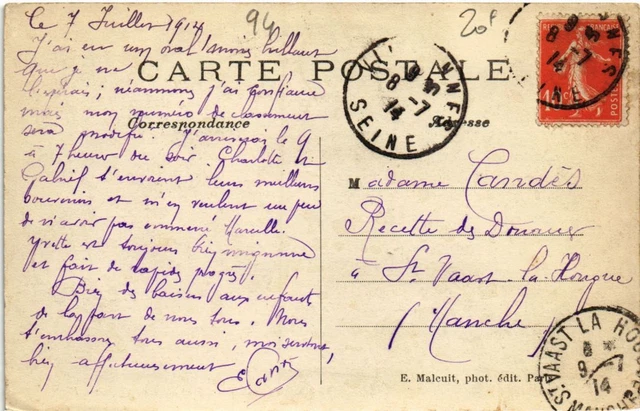 Le 7 Juillet 1914
94
20f
J'ai eu un oral moins brillant
que je ne
l'espérais ; néanmoins j'ai confiance
mais mon numéro de classement
sera modifié. J'arriverai le 9
à 7 heures du soir. Charlotte et
Gabriel t'envoient leurs meilleurs
souvenirs et m'en veulent un peu
de n'avoir pas emmené Marcelle.
Yvette est toujours bien mignonne
et fait de rapides progrès.
Bien des baisers aux enfants
de la part de nous tous. Nous
t'embrassons tous aussi, moi
bien affectueusement
CARTE POSTALE
Correspondance
Adresse
Madame Candès
Recette des Douanes
à St Vaast-la-Hougue
(Manche)
E. Malcuit, phot. édit. Paris
8 -7
14
SEINE
POSTES
ST VAAST LA HOUGUE
9 -7
14
MANCHE